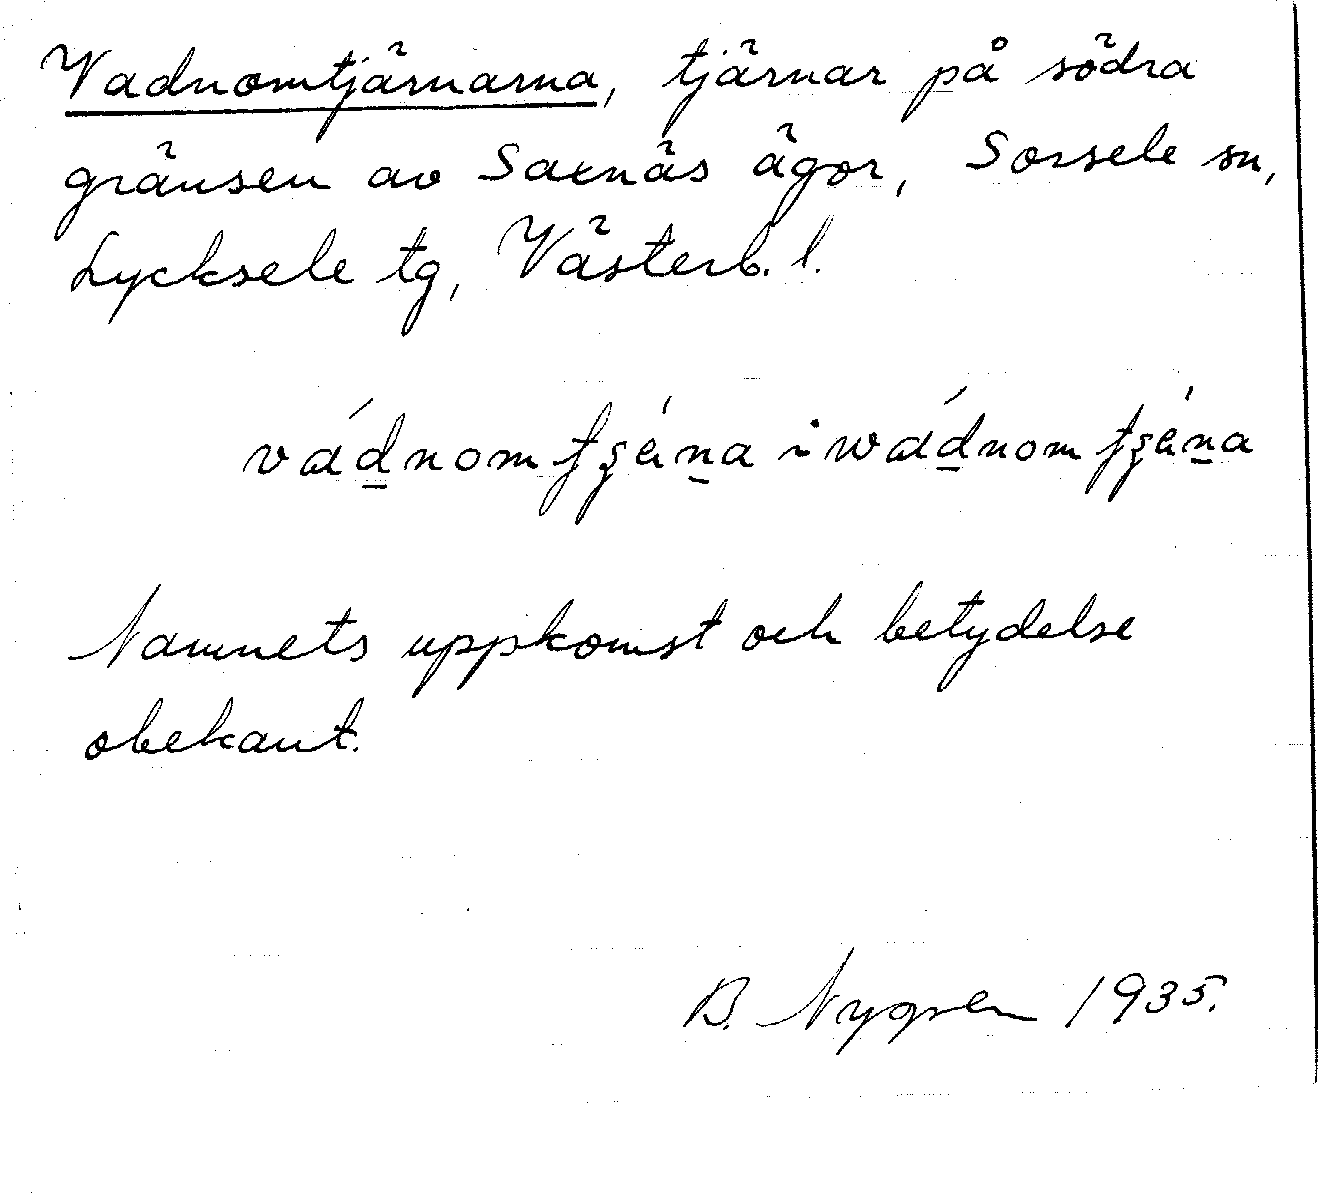 Vadnomtjärnarna, tjärnar på södra
gränsen av Saxnäs ägor, Sorsele sn,
Lycksele tg, Västerb. l.
vádnom
i wádnom
Namnets uppkomst och betydelse
obekant.
B. Nygren 1935.